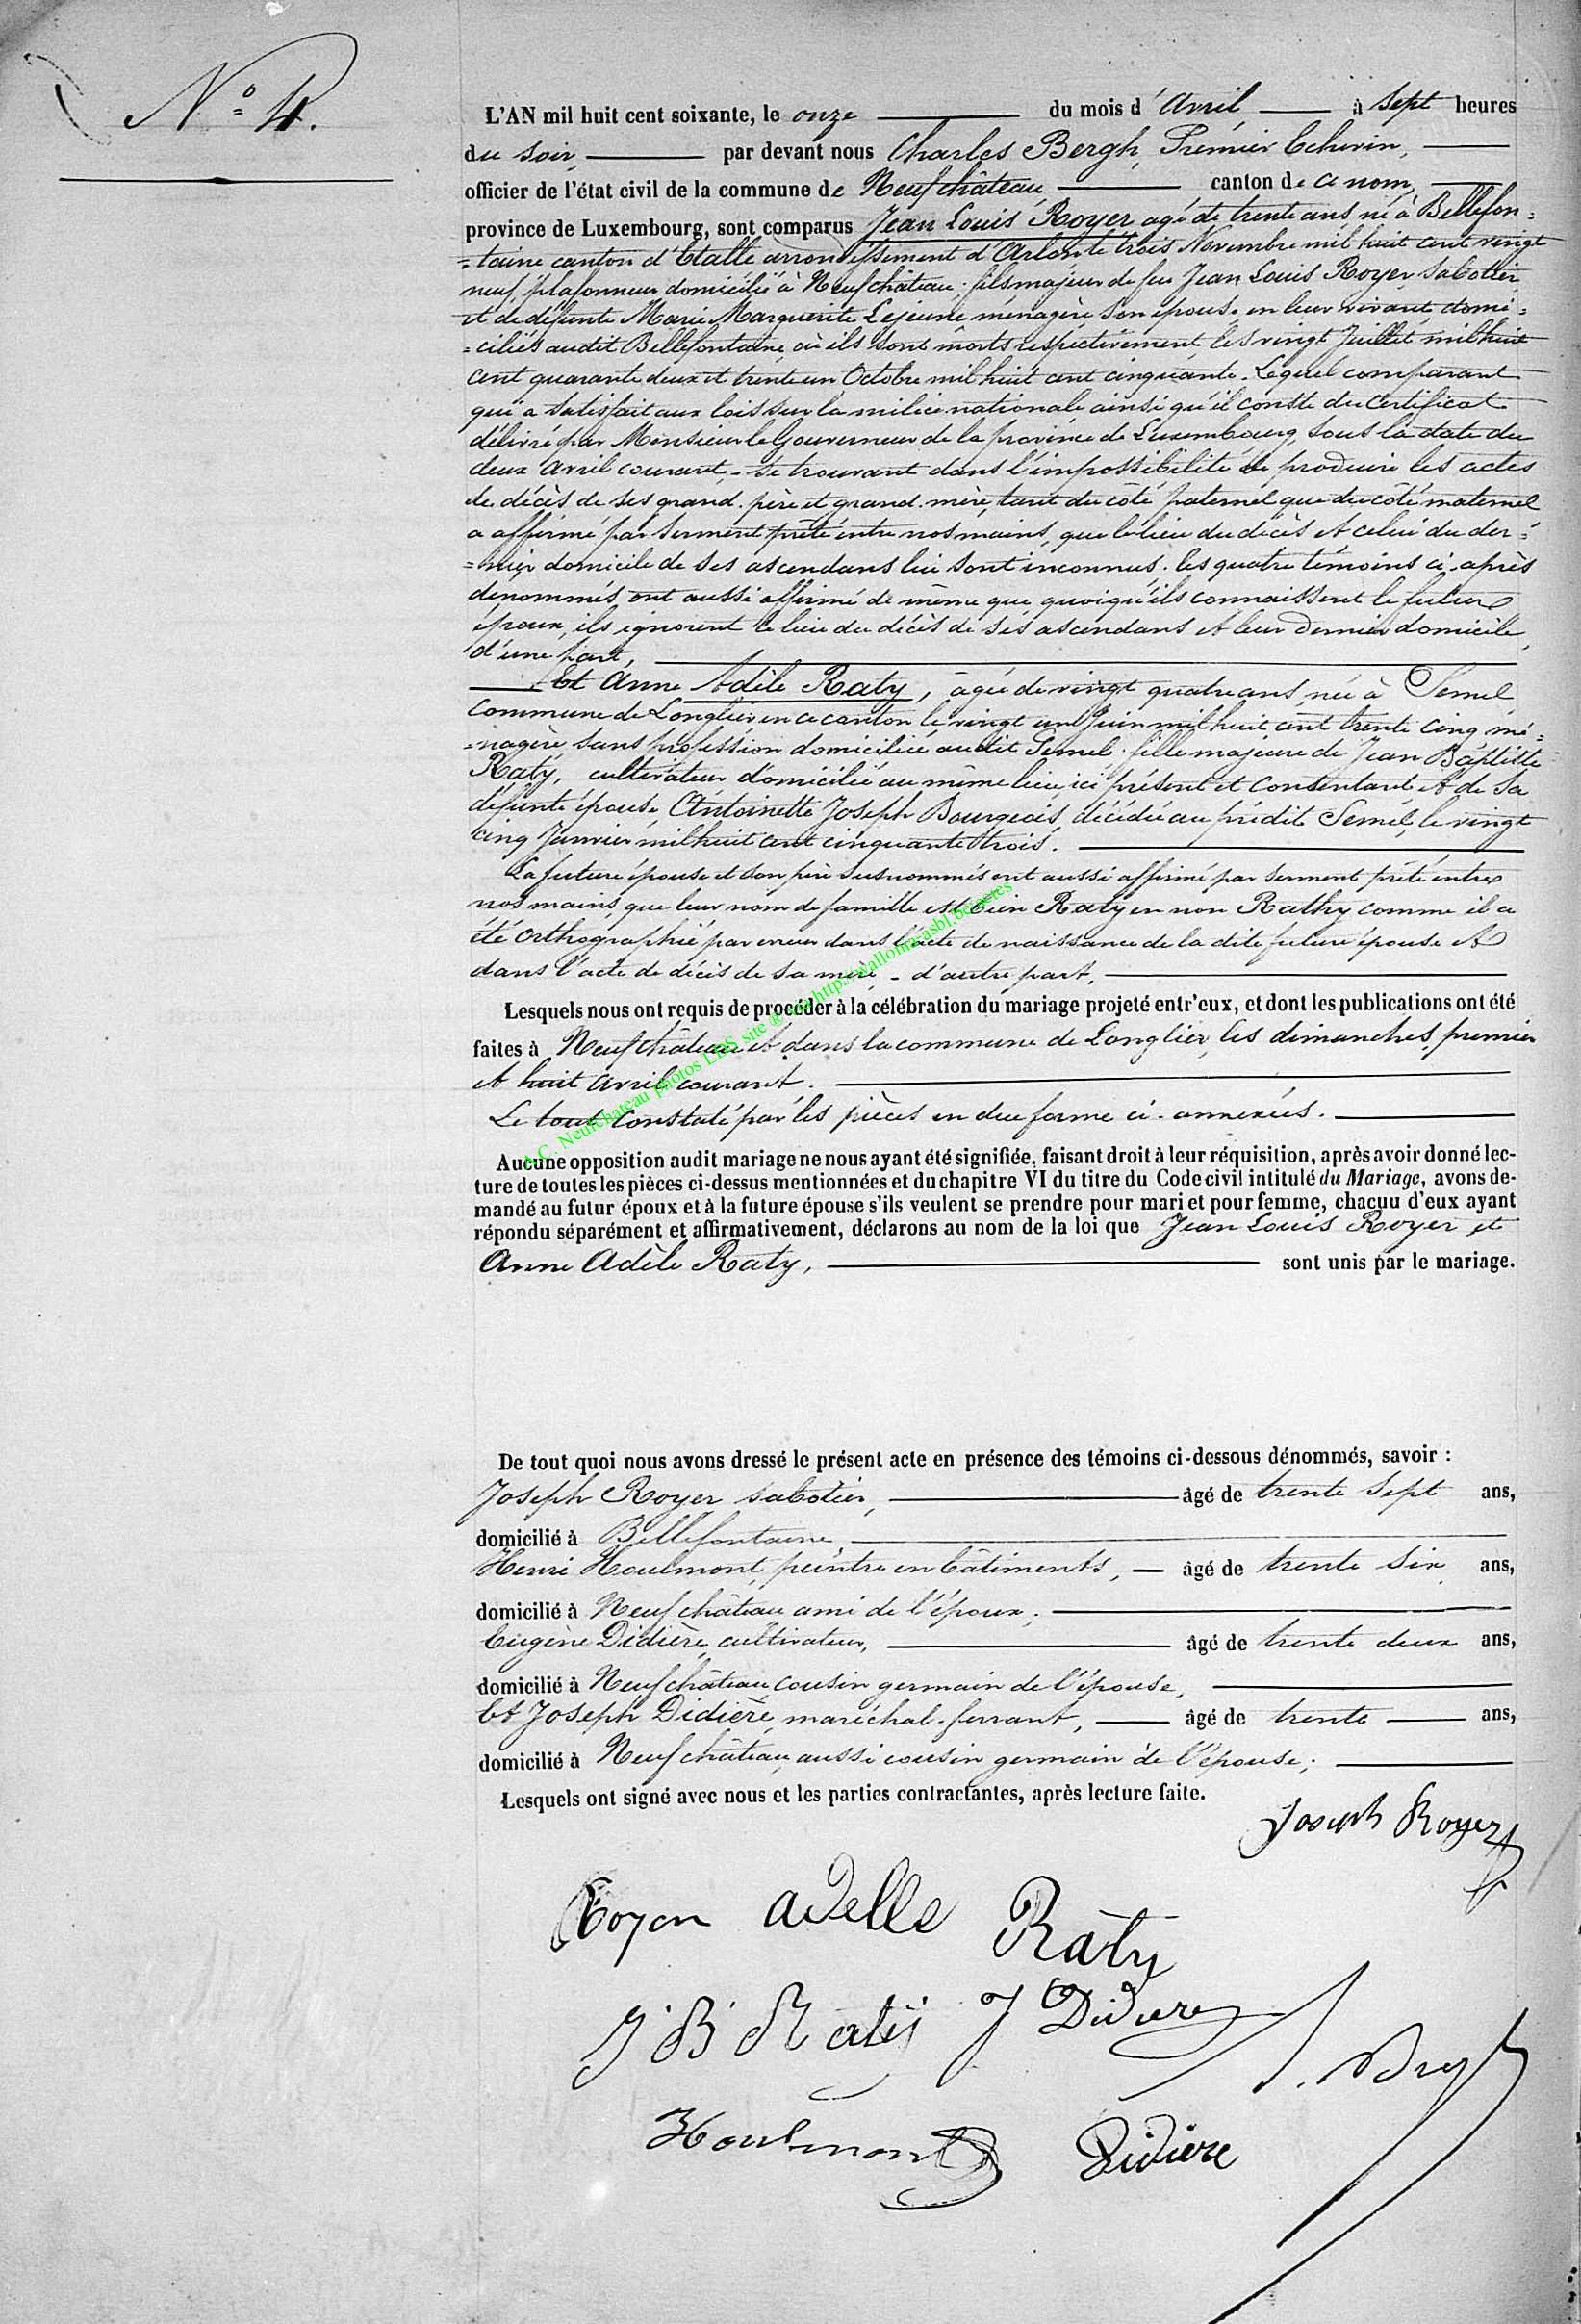 N° 4.
L'AN mil huit cent soixante, le onze du mois d'avril à sept heures
du soir, par devant nous Charles Bergh, Premier Echevin,
officier de l'état civil de la commune de Neufchâteau, canton de ce nom,
province de Luxembourg, sont comparus Jean Louis Royer agé de trente ans né à Bellefon=
=taine canton d'Etalle arrondissement d'Arlon le trois Novembre mil huit cent vingt
neuf, plafonneur domicilié à Neufchâteau; fils majeur de feu Jean Louis Royer, sabottier
et de défunte Marie Marguerite Lejeune ménagère son épouse en leur vivant domi=
=ciliés audit Bellefontaine, où ils sont morts respectivement les vingt Juillet mil huit
cent quarante deux et trente un Octobre mil huit cent cinquante. Lequel comparant
qui a satisfait aux lois sur la milice nationale ainsi qu'il conste du certificat
délivré par Monsieur le Gouverneur de la province de Luxembourg, sous la date du
deux avril courant, - se trouvant dans l'impossibilité de produire les actes
de décès de ses grand-père et grand-mère, tant du côté paternel que du côté maternel
a affirmé par serment prêté entre nos mains, que le lieu du décès et celui du der=
=nier domicile de ses ascendans lui sont inconnus. les quatre témoins ci-après
dénommés ont aussi affirmé de même que quoiqu'ils connaissent le futur
époux, ils ignorent le lieu du décès de ses ascendans et leur dernier domicile,
d'une part,
Et Anne Adèle Raty, âgée de vingt quatre ans, née à Semel
commune de Longlier en ce canton le vingt un Juin mil huit cent trente cinq mé=
=nagère, sans profession domiciliée audit Semel; fille majeure de Jean Baptiste
Raty, cultivateur domicilié au même lieu, ici présent et consentant et de sa
défunte épouse, Antoinette Joseph Bourgeois, décédée au prédit Semel, le vingt
cinq Janvier mil huit cent cinquante trois.
La future épouse et son père susnommés ont aussi affirmé par serment prêté entre
nos mains, que leur nom de famille est bien Raty en non Rathy comme il a
été orthographié par erreur dans l'acte de naissance de la dite future épouse et
dans l'acte de décès de sa mère, - d'autre part,
Lesquels nous ont requis de procéder à la célébration du mariage projeté entr'eux, et dont les publications ont été
faites à Neufchâteau et dans la commune de Longlier, les dimanches, premier
et huit avril courant.
Le tout constaté par les pièces en due forme ci-annexées.
A.C. Neufchateau photos LDS site
Aucune opposition audit mariage ne nous ayant été signifiée, faisant droit à leur réquisition, après avoir donné lec-
ture de toutes les pièces ci-dessus mentionnées et du chapitre VI du titre du Code civil intitulé du Mariage, avons de-
mandé au futur époux et à la future épouse s'ils veulent se prendre pour mari et pour femme, chacuu d'eux ayant
répondu séparément et affirmativement, déclarons au nom de la loi que Jean Louis Royer et
Anne Adèle Raty, sont unis par le mariage.
De tout quoi nous avons dressé le présent acte en présence des témoins ci-dessous dénommés, savoir :
Joseph Royer sabotier, âgé de trente sept ans,
domicilié à Bellefontaine,
Henri Houlmont, peintre en bâtiments, âgé de trente six ans,
domicilié à Neufchâteau ami de l'époux;
Eugène Didière, cultivateur, âgé de trente deux ans,
domicilié à Neufchâteau cousin germain de l'épouse,
Et Joseph Didière, maréchal-ferrant, âgé de trente ans,
domicilié à Neufchâteau, aussi cousin germain de l'épouse;
Lesquels ont signé avec nous et les parties contractantes, après lecture faite.
Joseph Royer
Royer adelle Râty
J B Ratÿ J Didiere
Houlmont Didiere